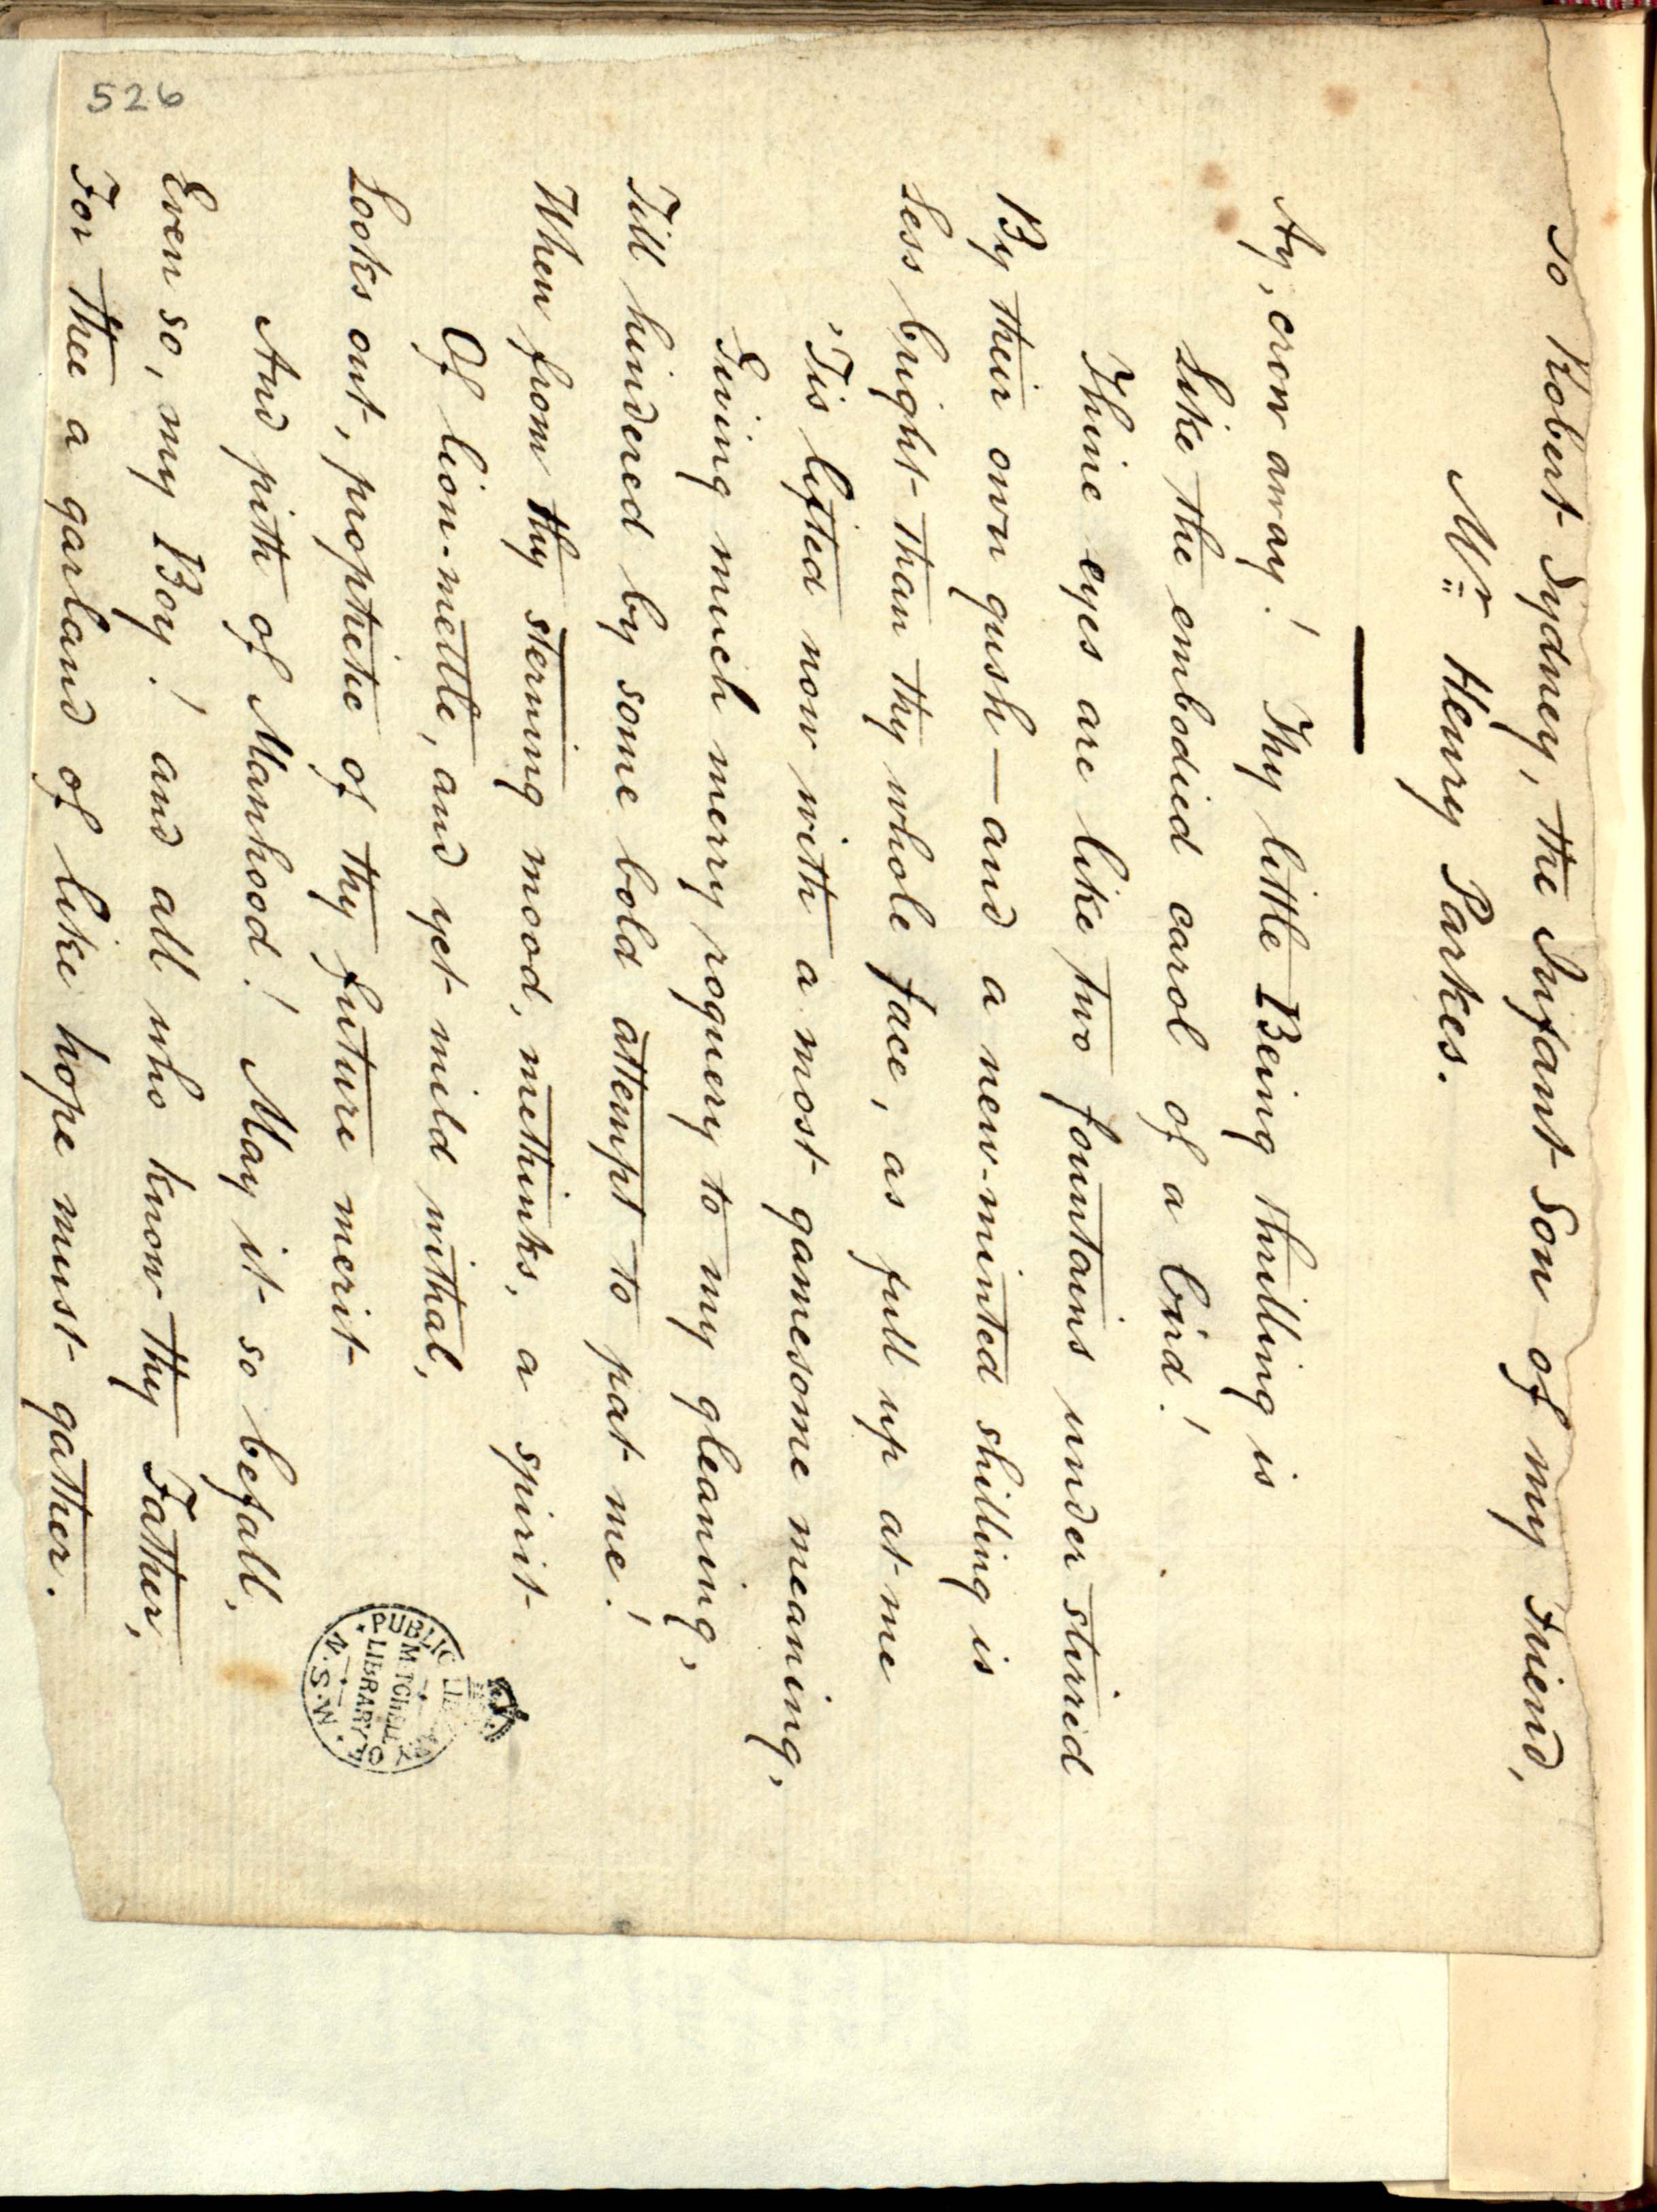 To Robert Sydney, the Infant Son of my Friend,
Mr Henry Parkes.
Ay, crow away! Thy little Being thrilling is
Like the embodied carol of a bird!
Thine eyes are like two fountains under stirred
By their own gush—and a new-minted shilling is
Less bright than thy whole face, as full up at me
'Tis lifted now with a most gamesome meaning,
Giving much merry roguery to my gleaning,
Till hindered by some bold attempt to pat me!
When from thy sterning mood, methinks, a spirit
Of lion-mettle, and yet mild withal,
Looks out, prophetic of thy future merit
And pith of Manhood! May it so befall,
Even so, my Boy! and all who know thy Father,
For thee a garland of like hope must gather.
526
PUBLIC LIBRARY OF N.S.W.
MITCHELL LIBRARY